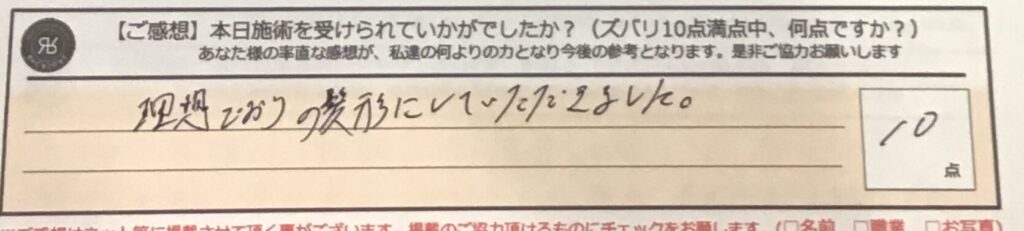 【ご感想】本日施術を受けられていかがでしたか？（ズバリ10点満点中、何点ですか？）
あなた様の率直な感想が、私達の何よりの力となり今後の参考となります。是非ご協力お願いします
理想どおりの髪形にしていただきました。
10
点
掲載のご協力頂けるものにチェックをお願します（□名前 □職業 □お写真）